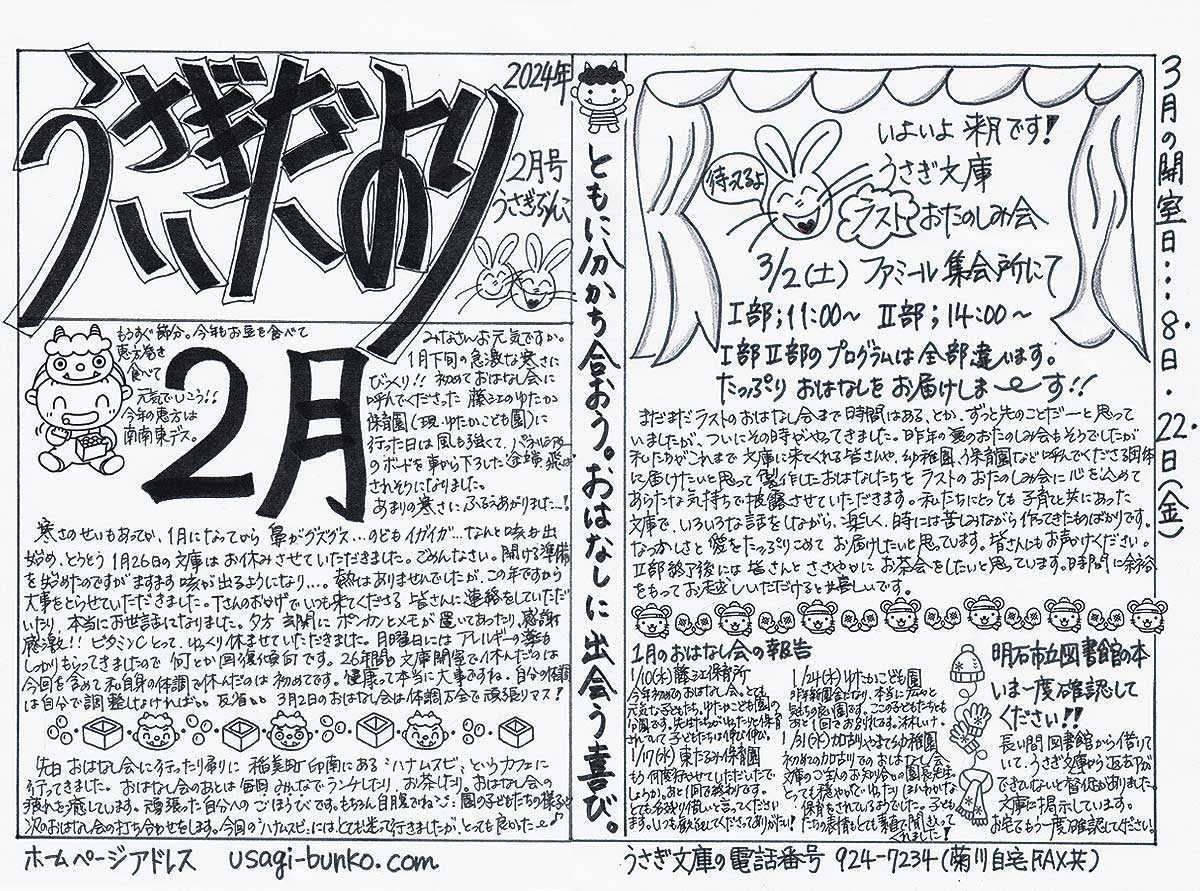 うさぎだより
2024年
2月号
うさぎぶんこ
もうすぐ節分。今年もお豆を食べて
恵方巻き
食べて
元気でいこう!!
今年の恵方は
南南東デス。
2月
みなさんお元気ですか。
1月下旬の急激な寒さに
びっくり!! 初めておはなし会に
呼んでくださった 藤江のゆたか
保育園(現・ゆたかこども園)に
行った日は風も強くて、パネルシアター
のボードを車から下ろした途端、飛ば
されそうになりました。
あまりの寒さにふるえあがりました…!
寒さのせいもあってか、1月になってから鼻がグズグズ…のどもイガイガ…なんと咳も出
始め、とうとう1月26日の文庫はお休みさせていただきました。ごめんなさい。開ける準備
を始めたのですがますます咳が出るようになり…。熱はありませんでしたが、この年ですから
大事をとらせていただきました。Tさんのおかげでいつも来てくださる皆さんに連絡をしていただ
いたり、本当にお世話になりました。夕方 玄関にポンカンとメモが置いてあったり、感謝
感激!! ビタミンCとって、ゆっくり休ませていただきました。日曜日にはアレルギーの薬も
しっかりもらってきましたので 何とか回復傾向です。26年間の文庫開室で休んだのは
今回を含めて私自身の体調で休んだのは初めてです。健康って本当に大事ですね。自分の体調
は自分で調整しなければ。。反省。。 3月2日のおはなし会は体調万全で頑張りマス!
先日 おはなし会に行ったり帰りに 稲美町印南にある"ハナムスビ"というカフェに
行ってきました。おはなし会のあとは毎回みんなでランチしたり、お茶したり。おはなし会の
疲れを癒しています。頑張った自分へのごほうびです。もちろん自腹でね。園の子どもたちの様子や
次のおはなし会の打ち合わせをします。今回の"ハナムスビ"にはとても迷って行きましたが、とっても良かったー♪
ともに分かち合おう。おはなしに出会う喜び。
待ってるよ
いよいよ来月です!
うさぎ文庫
ラスト おたのしみ会
3/2(土) ファミール集会所にて
I部;11:00~ II部;14:00~
I部II部のプログラムは全部違います。
たっぷりおはなしをお届けしまーす!!
まだまだラストのおはなし会まで時間はある、とか、ずっと先のことだーと思って
いましたが、ついにその時がやってきました。昨年の夏のおたのしみ会もそうでしたが
私たちがこれまで文庫に来てくれる皆さんや、幼稚園、保育園など呼んでくださる団体
に届けたいと思って製作したおはなしたちをラストのおたのしみ会に心を込めて
あらたな気持ちで披露させていただきます。私たちにとっても子育てと共にあった
文庫で、いろいろな話をしながら、楽しく、時には苦しみながら作ってきたものばかりです。
なつかしさと愛をたっぷりこめてお届けしたいと思っています。皆さんにもお声かけください。
II部終了後には皆さんとささやかにお茶会をしたいと思っています。時間に余裕
をもってお越しいただけると嬉しいです。
1月のおはなし会の報告
1/10(水)藤江保育所
今年初めてのおはなし会。とても
元気な子どもたち。ゆたかこども園の
分園です。先生たちがゆったりと保育
されていて子どもたちは伸び伸び。
1/17(水)東たるみ保育園
もう何度行かせていただいたで
しょうか。あと1回で終わりです。
とても名残り惜しいと言ってください
ます。いつも歓迎してくださってありがたい!
1/24(水)ゆたかこども園
昨年新園舎になり、本当に広々と
気持ちの良い園です。ここの子どもたちとも
あと1回でお別れです。淋しい。
1/31(水)加古川やまて幼稚園
初めての加古川でのおはなし会。
文庫のご近所のお知り合いの園長先生
とっても穏やかでゆったりほんわかな
保育をされているようでした。子ども
たちの表情もとても素直で聞き入って
くれました!
明石市立図書館の本
いま一度確認して
ください!!
長い間図書館から借りて
いて、うさぎ文庫から返却が
できていないと督促がありました。
文庫に掲示しています。
お宅でもう一度確認してください。
3月の開室日…8日・22日(金)
ホームページアドレス usagi-bunko.com
うさぎ文庫の電話番号 924-7234(菊川自宅FAX共)